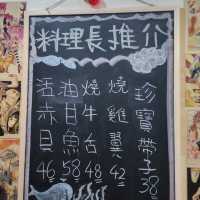 料理長推介
活赤貝 46
油甘魚 58
燒牛舌 48
燒雞翼 42
珍寶帶子 38